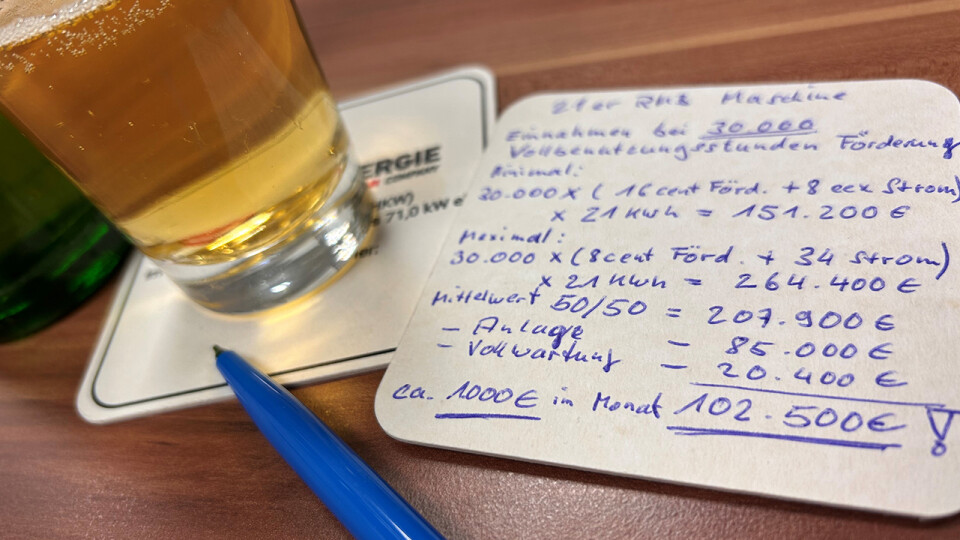 ERGIE
COMPANY
KW)
71,0 kW e
21er RMB Maschine
Einnahmen bei 30.000
Vollbenutzungsstunden Förderung
Minimal:
30.000 x (16 cent Förd. + 8 eex Strom)
x 21 kWh = 151.200 €
Maximal:
30.000 x (8 cent Förd. + 34 Strom)
x 21 kWh = 264.400 €
Mittelwert 50/50 = 207.900 €
- Anlage - 85.000 €
- Vollwartung - 20.400 €
ca. 1000€ im Monat 102.500€ !